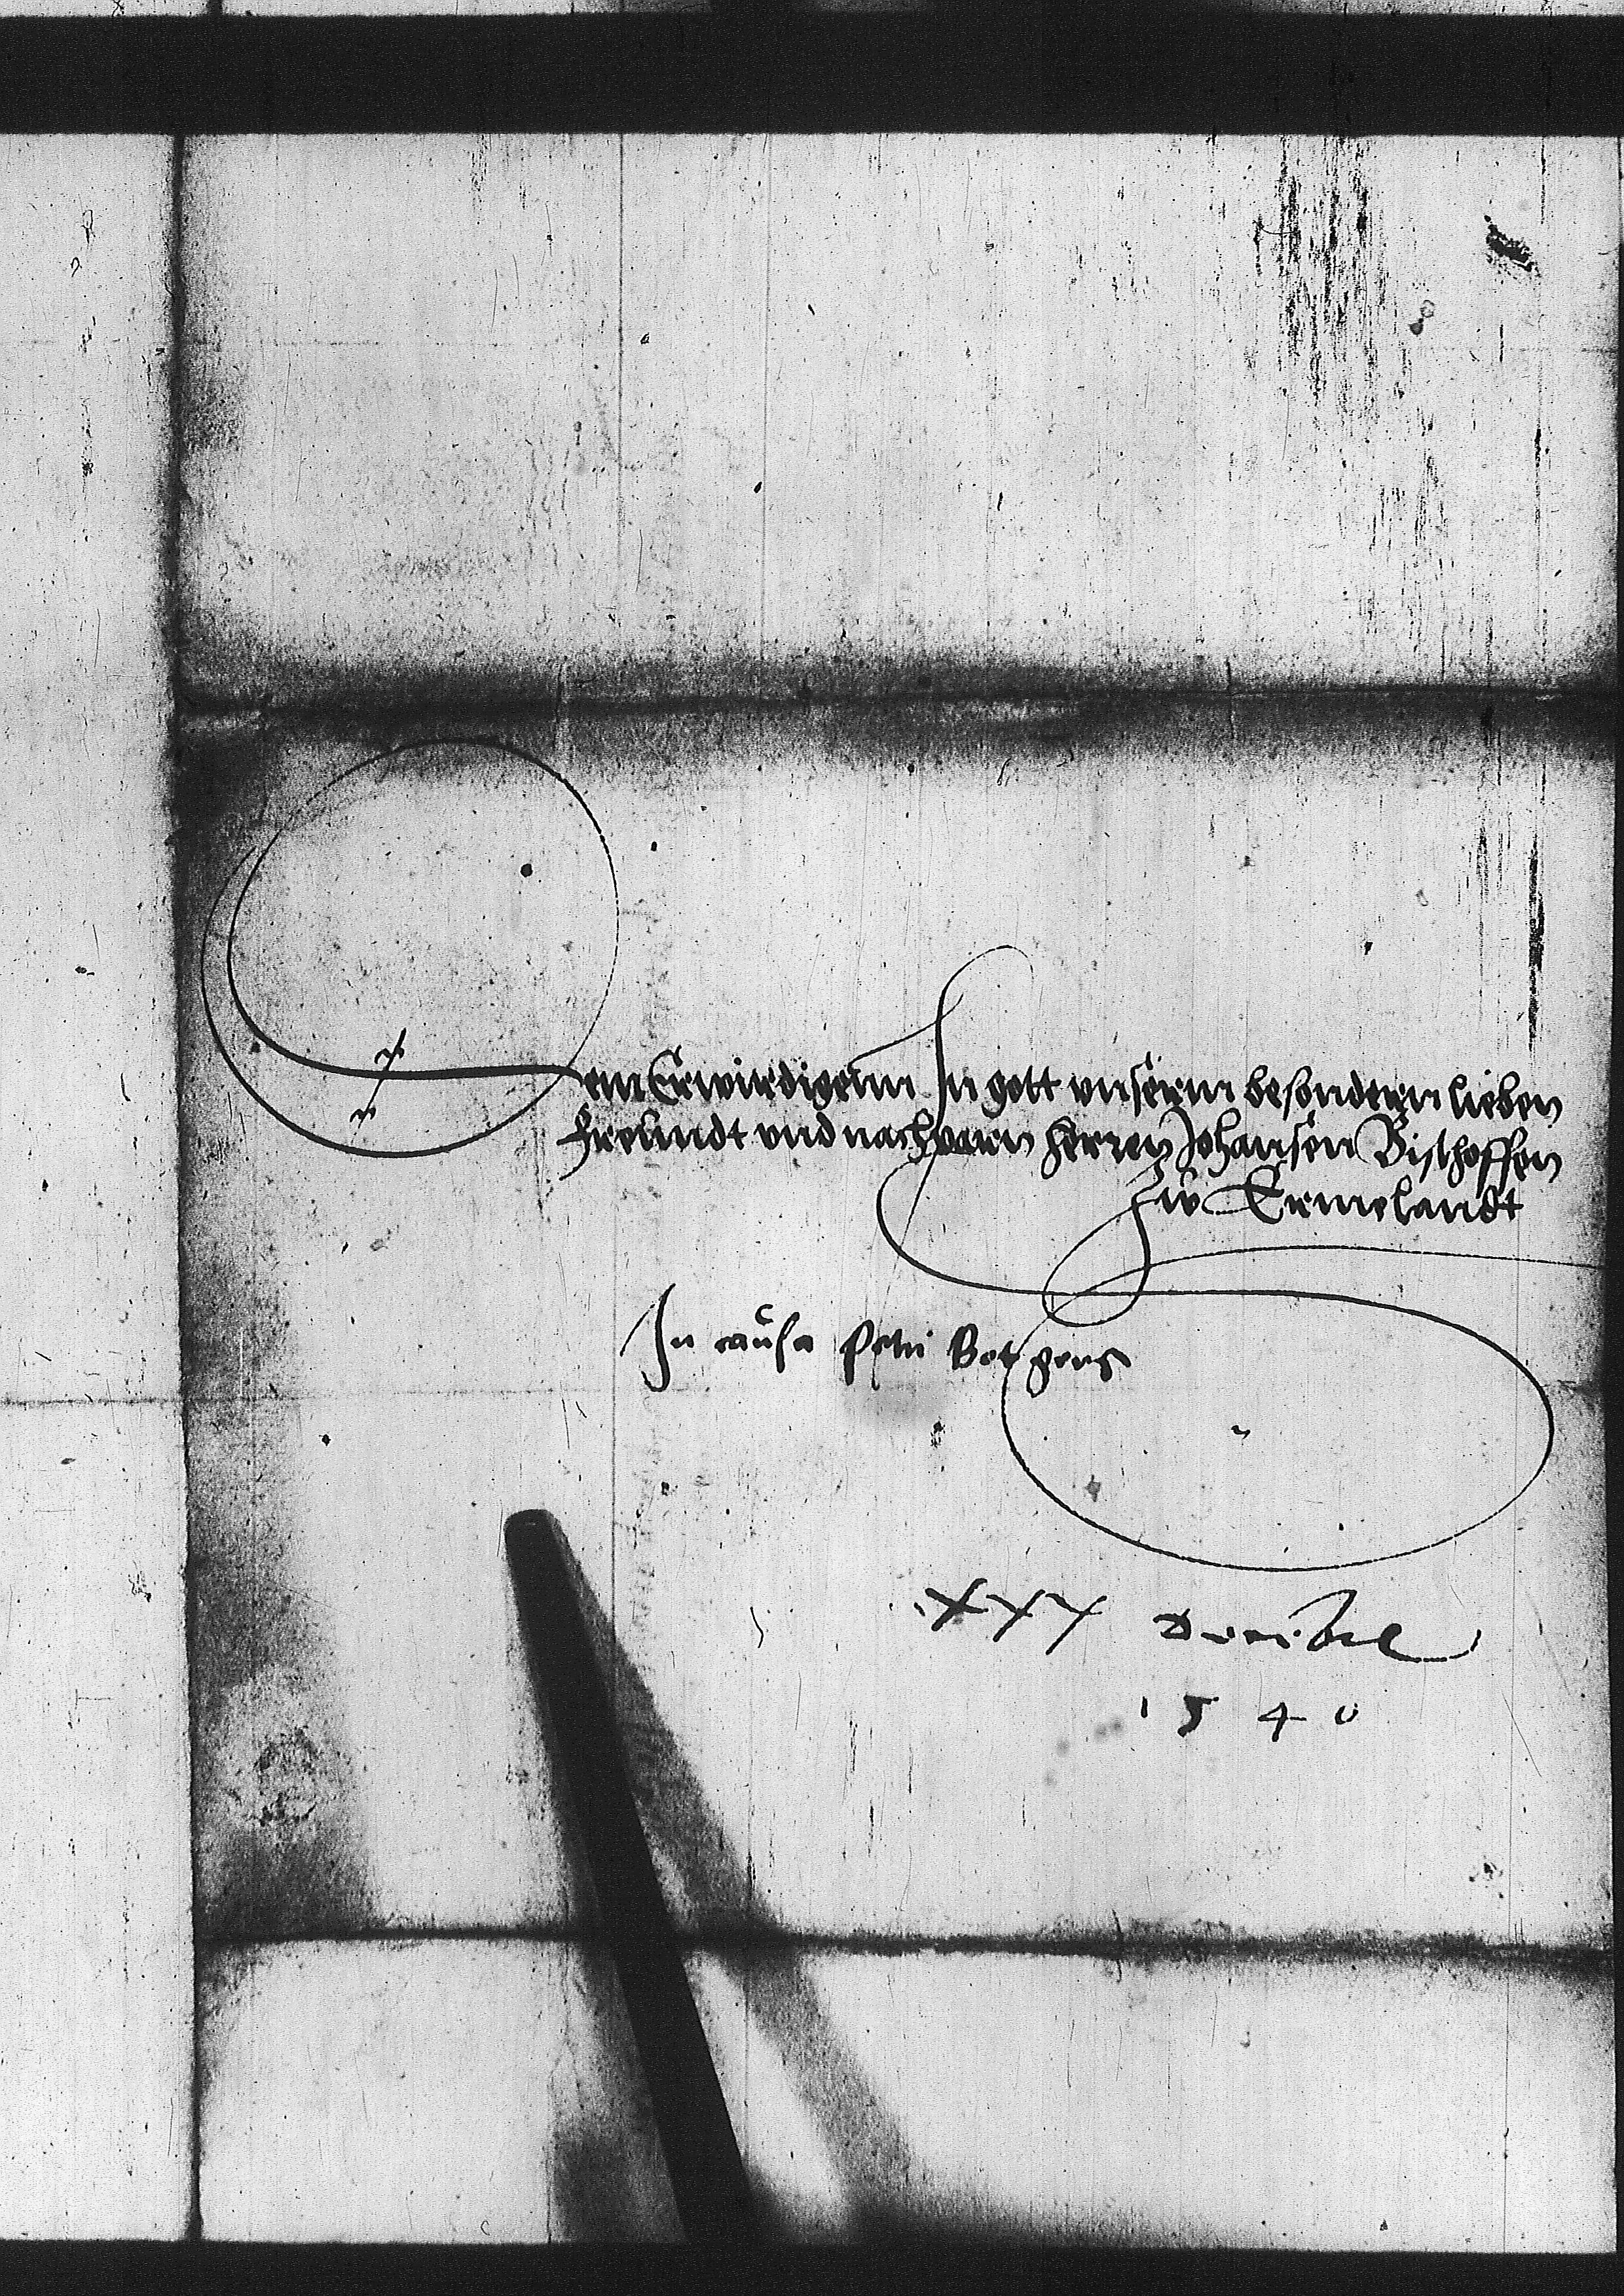 Dem Erwirdigenn In gott vnserm besondern lieben
Freundt vnd nachparn herren Johansen Bischoffen
zw Ermelandt
In causa Petri
XXX
1540